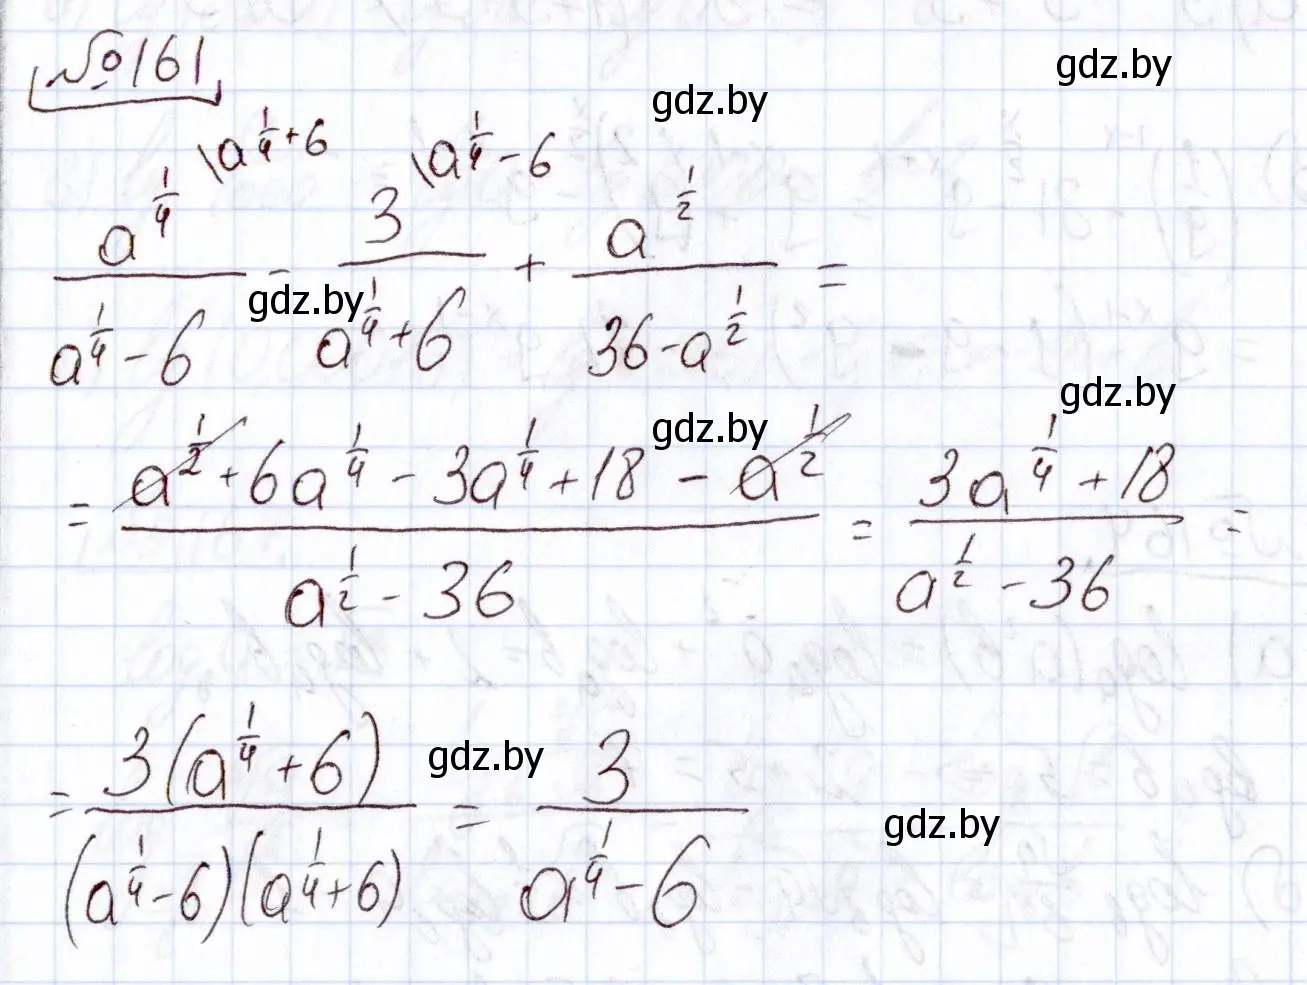 №161
\frac{a^{\frac{1}{4}}}{a^{\frac{1}{4}}-6}^{\backslash a^{\frac{1}{4}}+6} - \frac{3}{a^{\frac{1}{4}}+6}^{\backslash a^{\frac{1}{4}}-6} + \frac{a^{\frac{1}{2}}}{36-a^{\frac{1}{2}}} =
= \frac{a^{\frac{1}{2}}+6a^{\frac{1}{4}}-3a^{\frac{1}{4}}+18-a^{\frac{1}{2}}}{a^{\frac{1}{2}}-36} = \frac{3a^{\frac{1}{4}}+18}{a^{\frac{1}{2}}-36} =
= \frac{3(a^{\frac{1}{4}}+6)}{(a^{\frac{1}{4}}-6)(a^{\frac{1}{4}}+6)} = \frac{3}{a^{\frac{1}{4}}-6}
gdz.by
gdz.by
gdz.by
gdz.by
gdz.by
gdz.by
gdz.by